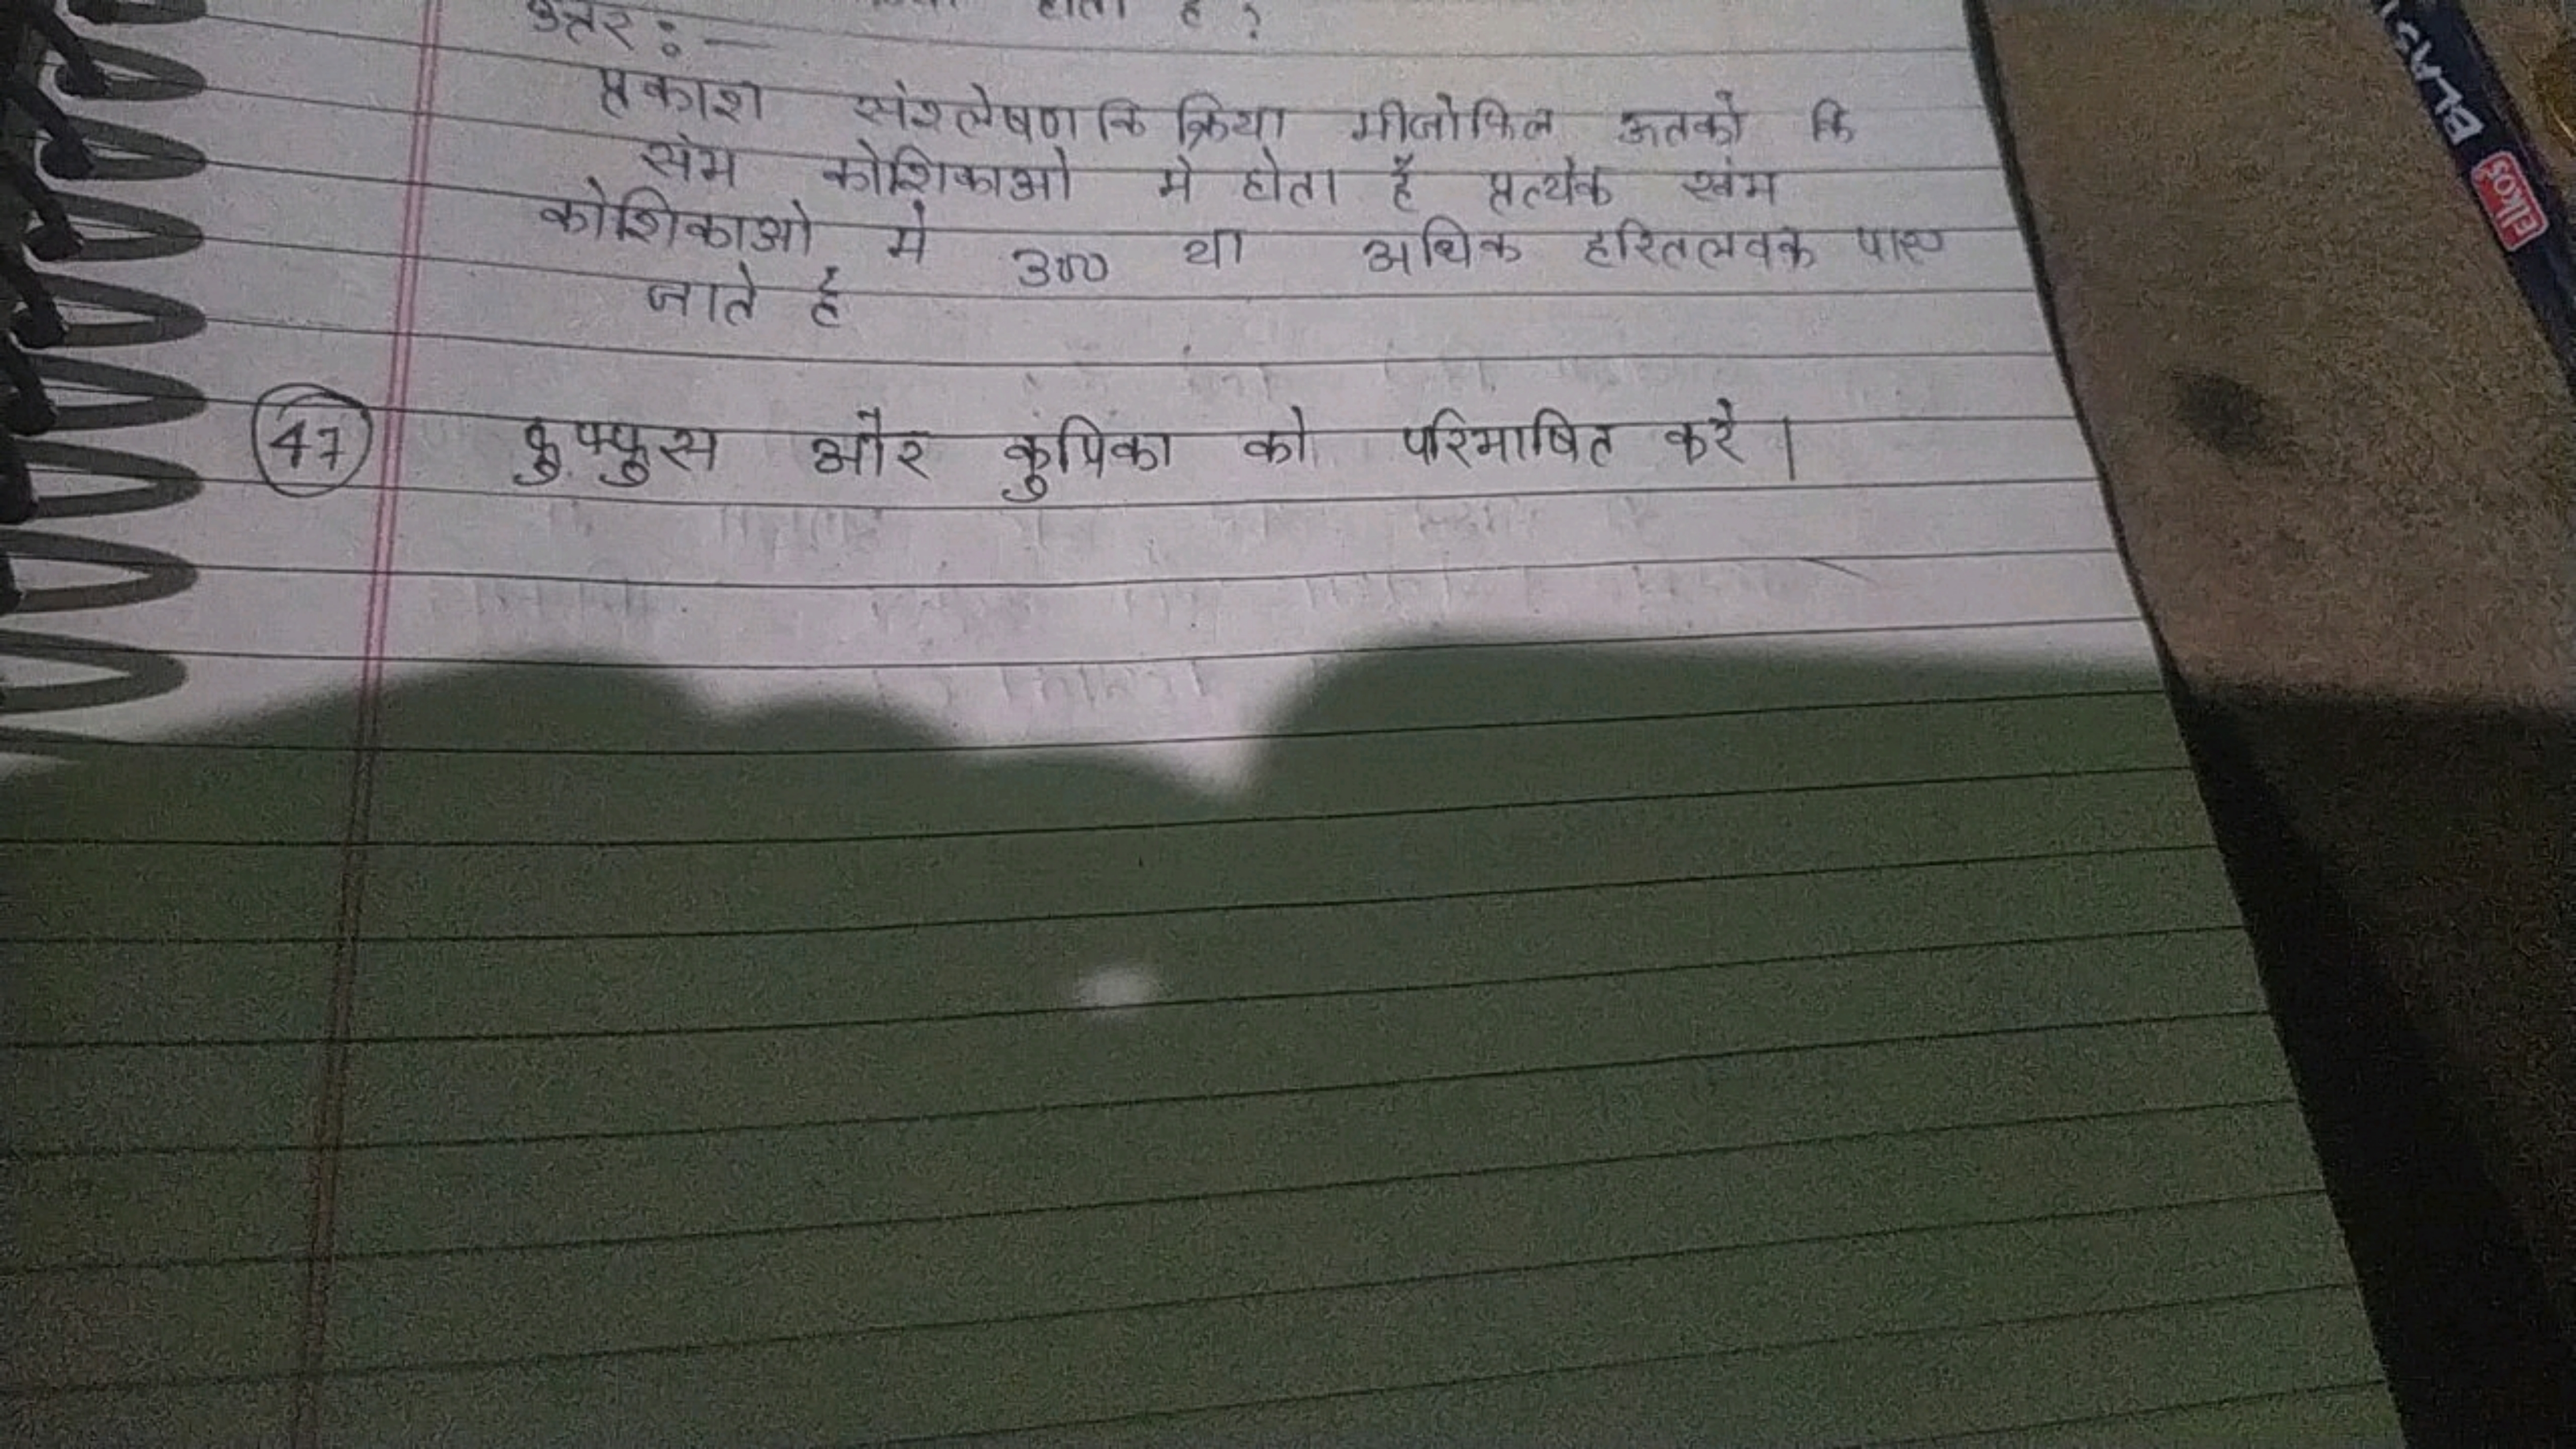 होता है ?
उत्तर : —
प्रकाश संश्लेषण कि क्रिया मीजोफिल ऊतको कि
खंभ कोशिकाओ मे होता है प्रत्येक खंभ
कोशिकाओ मे 300 या अधिक हरितलवक पाए
जाते है
47 फुफ्फुस और कुपिका को परिभाषित करे |
ELAS
elkos